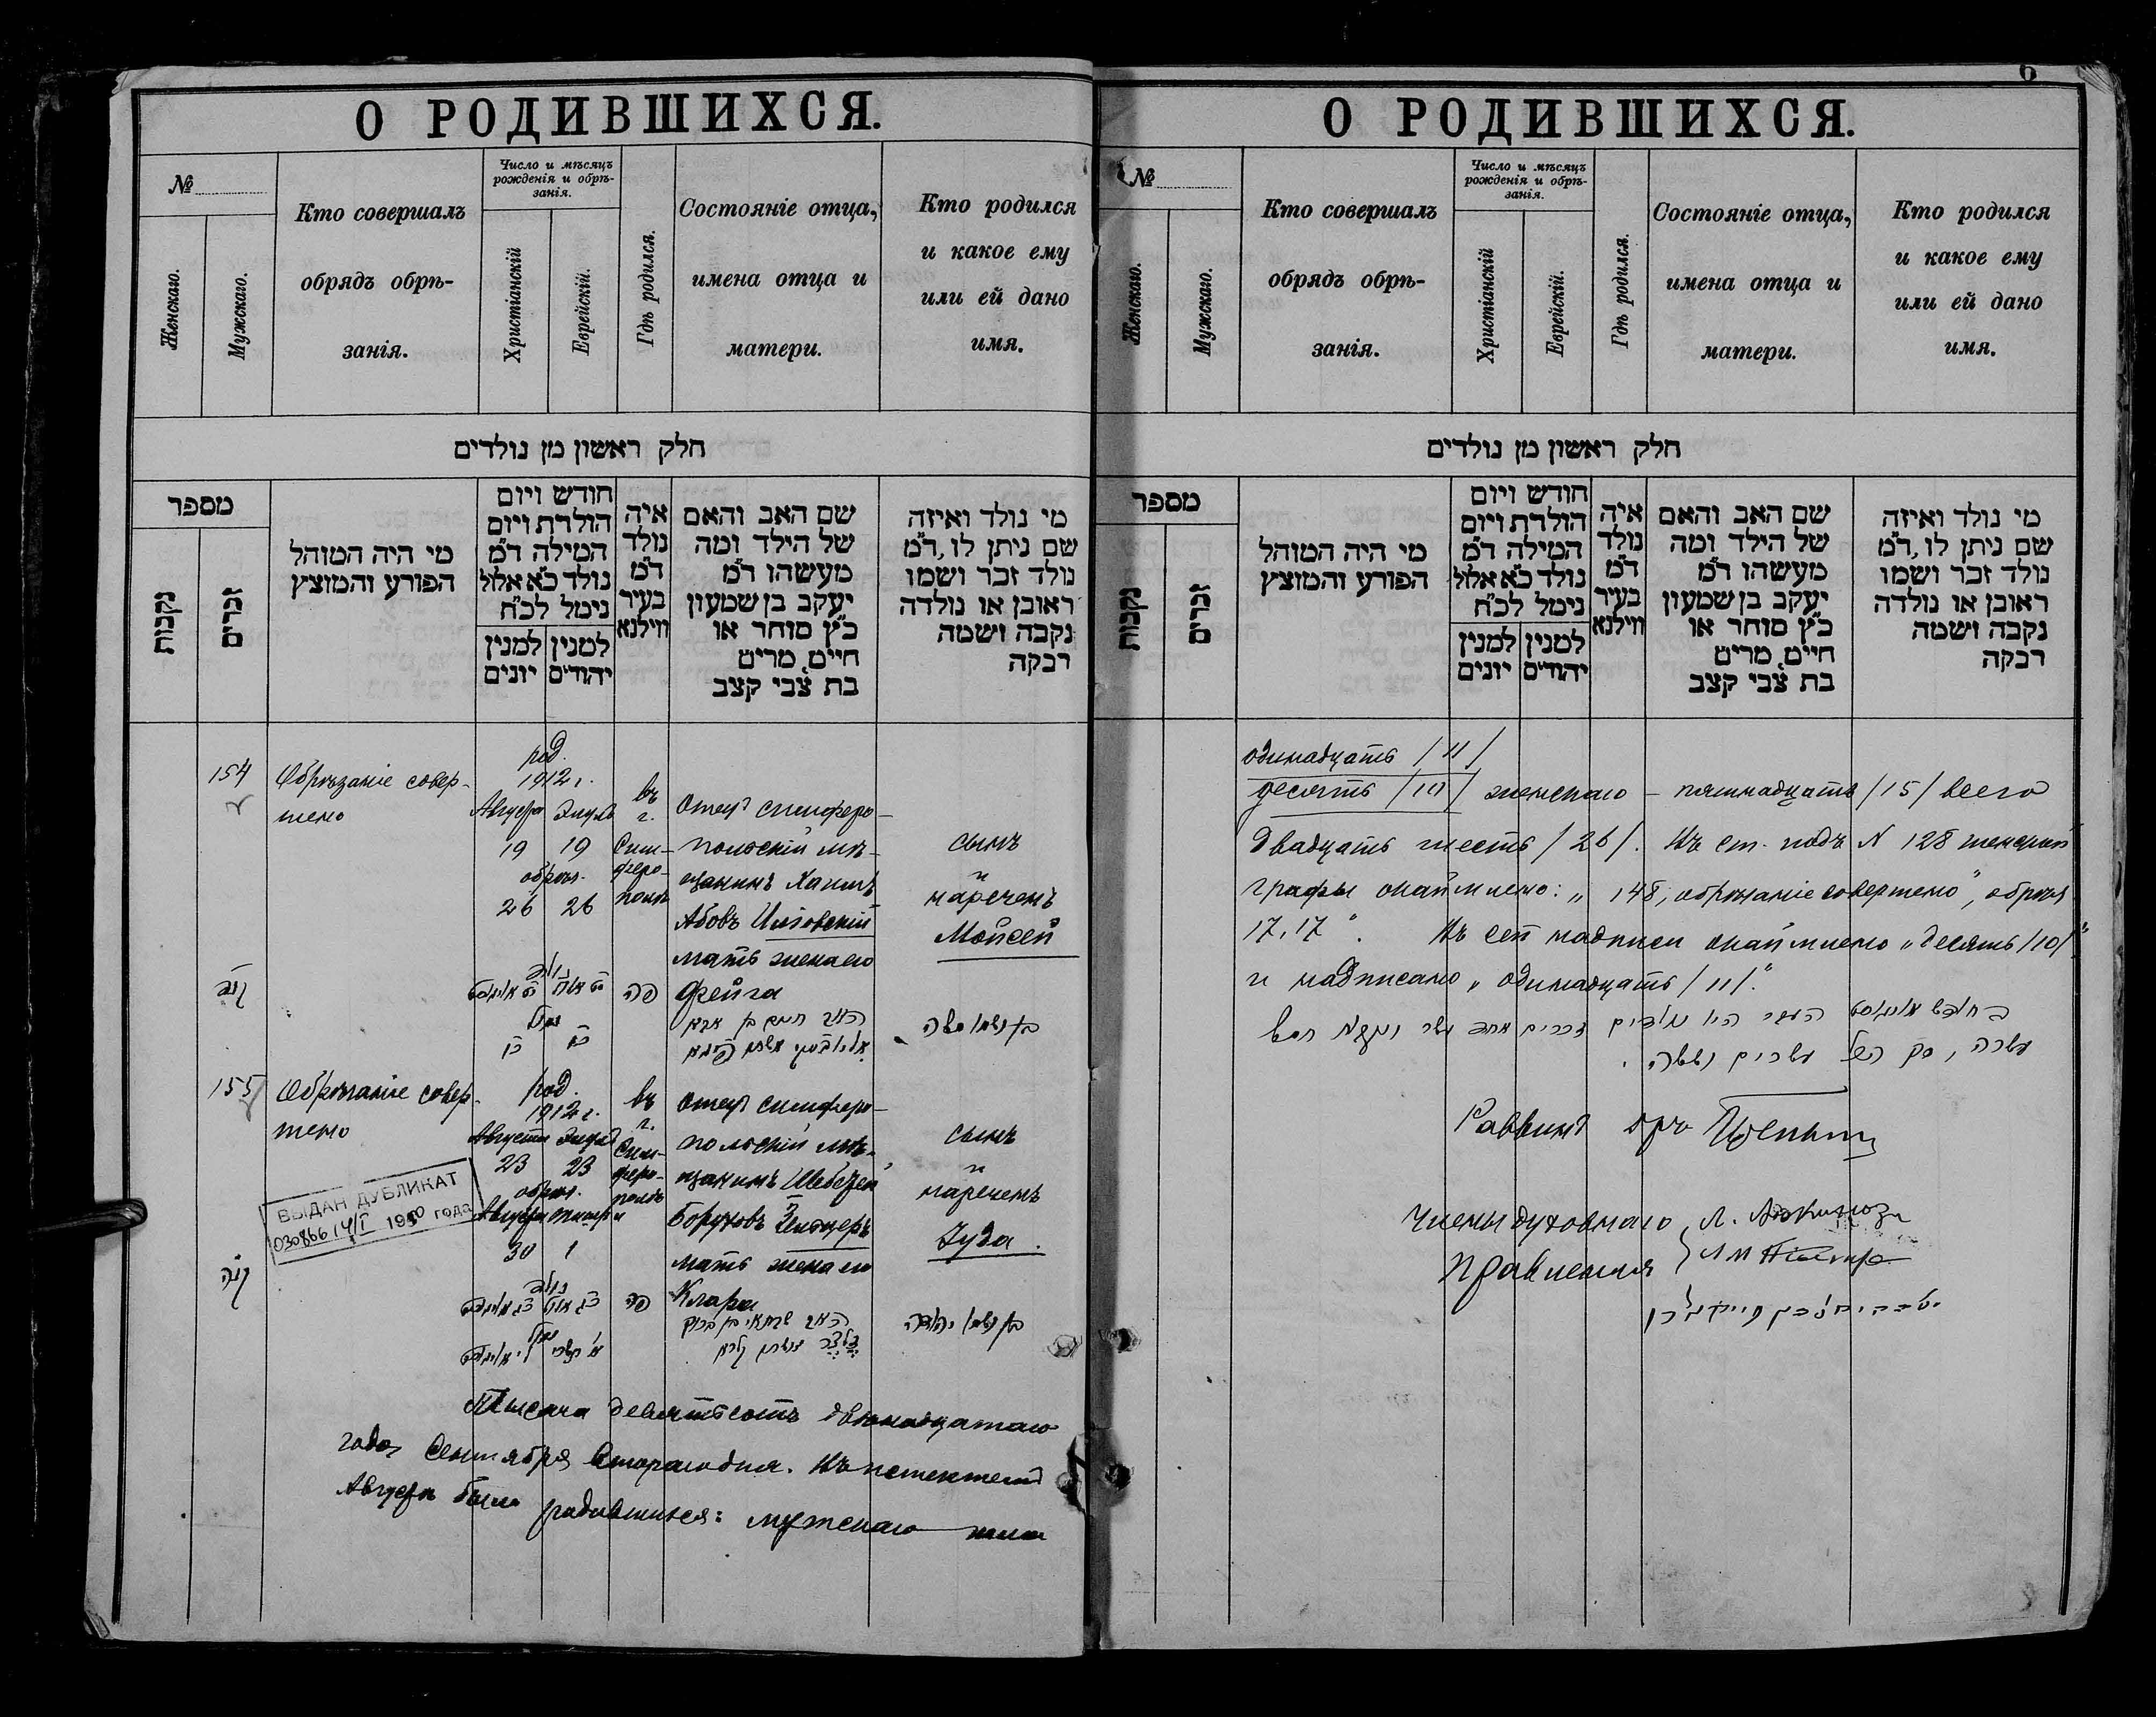 О РОДИВШИХСЯ.
№
Женскаго.
Мужскаго.
Кто совершалъ
обрядъ обрѣ-
занія.
Число и мѣсяцъ
рожденія и обрѣ-
занія.
Христіанскій
Еврейскій.
Гдѣ родился.
Состояніе отца,
имена отца и
матери.
Кто родился
и какое ему
или ей дано
имя.
חלק ראשון מן נולדים
מספר
נקבות
זכרים
מי היה המוהל
הפורע והמוצץ
חודש ויום
הולדת ויום
המילה ד״מ
נולד כ״א אלול
נימל לכ״ח
למנין יהודים
למנין יונים
איה
נולד
ד״מ
בעיר
ווילנא
שם האב והאם
של הילד ומה
מעשהו ד״מ
יעקב בן שמעון
כ״ץ סוחר או
חייט, מרים
בת צבי קצב
מי נולד ואיזה
שם ניתן לו, ד״מ
נולד זכר ושמו
ראובן או נולדה
נקבה ושמה
רבקה
154
Обрѣзаніе совер-
шено
род.
1912 г.
Августа Элулъ
19 19
обрѣз.
26 26
въ
г.
Сим-
феро-
полѣ
Отецъ симферо-
польскій мѣ-
щанинъ Хаимъ
Абовъ
мать жена его
Фейга
сынъ
и
нареченъ
Мойсей
פה
בן ושמו משה
155
Обрѣзаніе совер-
шено
род.
1912 г.
Августа Элулъ
23 23
обрѣз.
Августа Тишри
30 1
въ
г.
Сим-
феро-
полѣ
Отецъ симферо-
польскій мѣ-
щанинъ
Боруховъ
мать жена его
Клара
сынъ
и
нареченъ
Іуда.
פה
בן ושמו יהודה
ВЫДАН ДУБЛИКАТ
030866 14/I 1950 года
Тысяча девятьсотъ двѣнадцатаго
года Сентября второго дня. Въ истекшемъ
Августѣ было родившихся: мужскаго пола
6
О РОДИВШИХСЯ.
№
Женскаго.
Мужскаго.
Кто совершалъ
обрядъ обрѣ-
занія.
Число и мѣсяцъ
рожденія и обрѣ-
занія.
Христіанскій
Еврейскій.
Гдѣ родился.
Состояніе отца,
имена отца и
матери.
Кто родился
и какое ему
или ей дано
имя.
חלק ראשון מן נולדים
מספר
נקבות
זכרים
מי היה המוהל
הפורע והמוצץ
חודש ויום
הולדת ויום
המילה ד״מ
נולד כ״א אלול
נימל לכ״ח
למנין יהודים
למנין יונים
איה
נולד
ד״מ
בעיר
ווילנא
שם האב והאם
של הילד ומה
מעשהו ד״מ
יעקב בן שמעון
כ״ץ סוחר או
חייט, מרים
בת צבי קצב
מי נולד ואיזה
שם ניתן לו, ד״מ
נולד זכר ושמו
ראובן או נולדה
נקבה ושמה
רבקה
одинадцать /11/
десять /10/ женскаго – пятнадцать /15/ всего
двадцать шесть /26/. Въ ст. подъ N 128 женской
графы „ 148, обрѣзаніе совершено", обрѣз.
17, 17". Въ сей надписи „десять /10/"
и надписано „одинадцать /11/."
עשרה, סך הכל עשרים וששה.
Раввинъ
Члены духовнаго
правленія